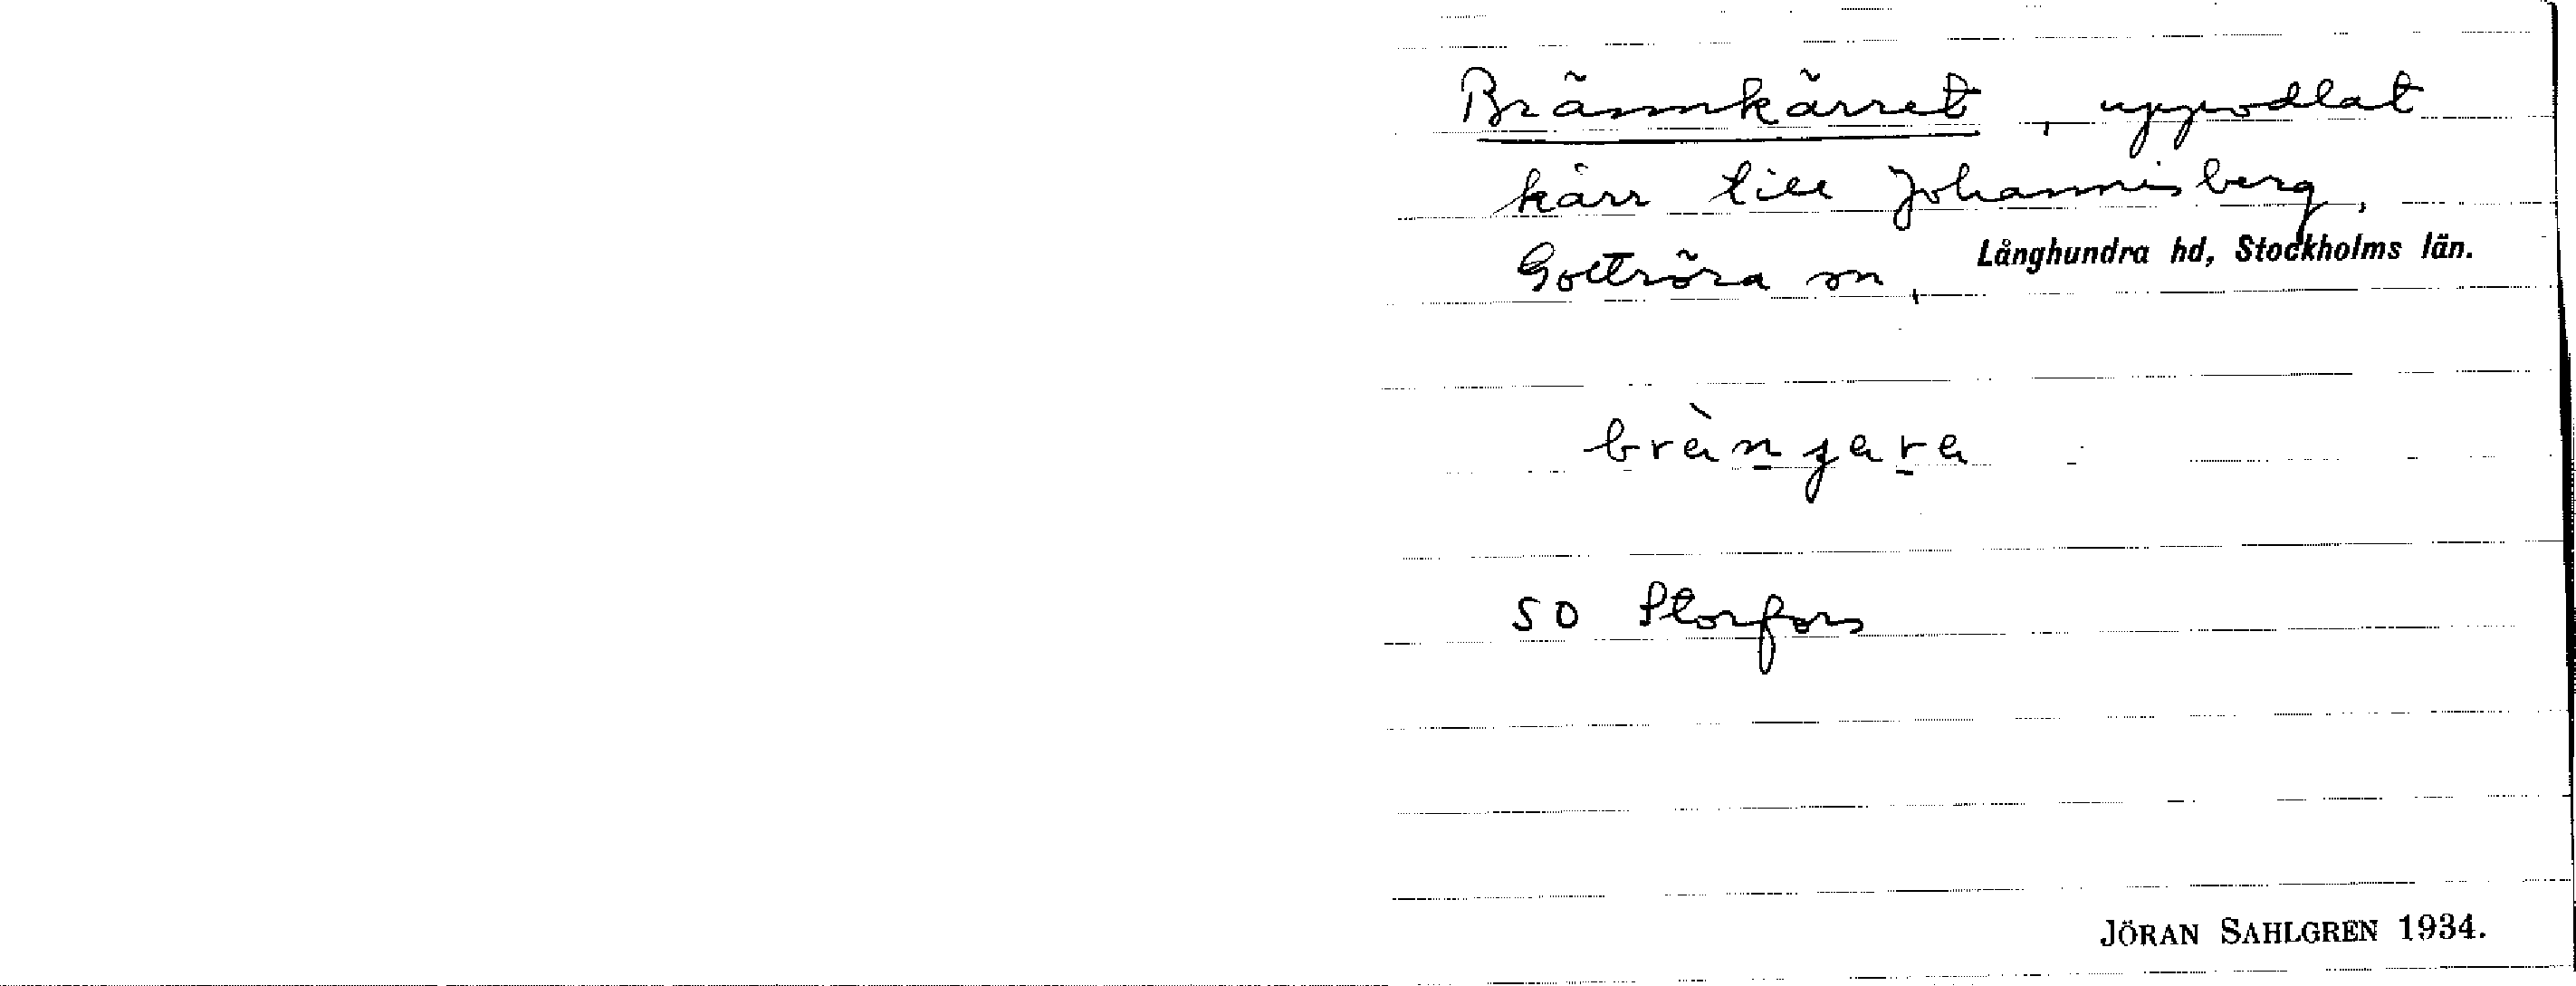 Brännkärret, uppodlat
kärr till Johannisberg,
Gottröra sn, Långhundra hd, Stockholms län.
SO Storfors
JÖRAN SAHLGREN 1934.